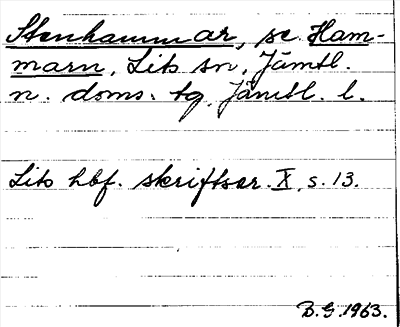 Stenhammar, se Ham-
marn, Lits sn, Jämtl.
n. doms. tg, Jämtl. l.
Lits hbf. skriftser. X, s. 13.
B.G. 1963.